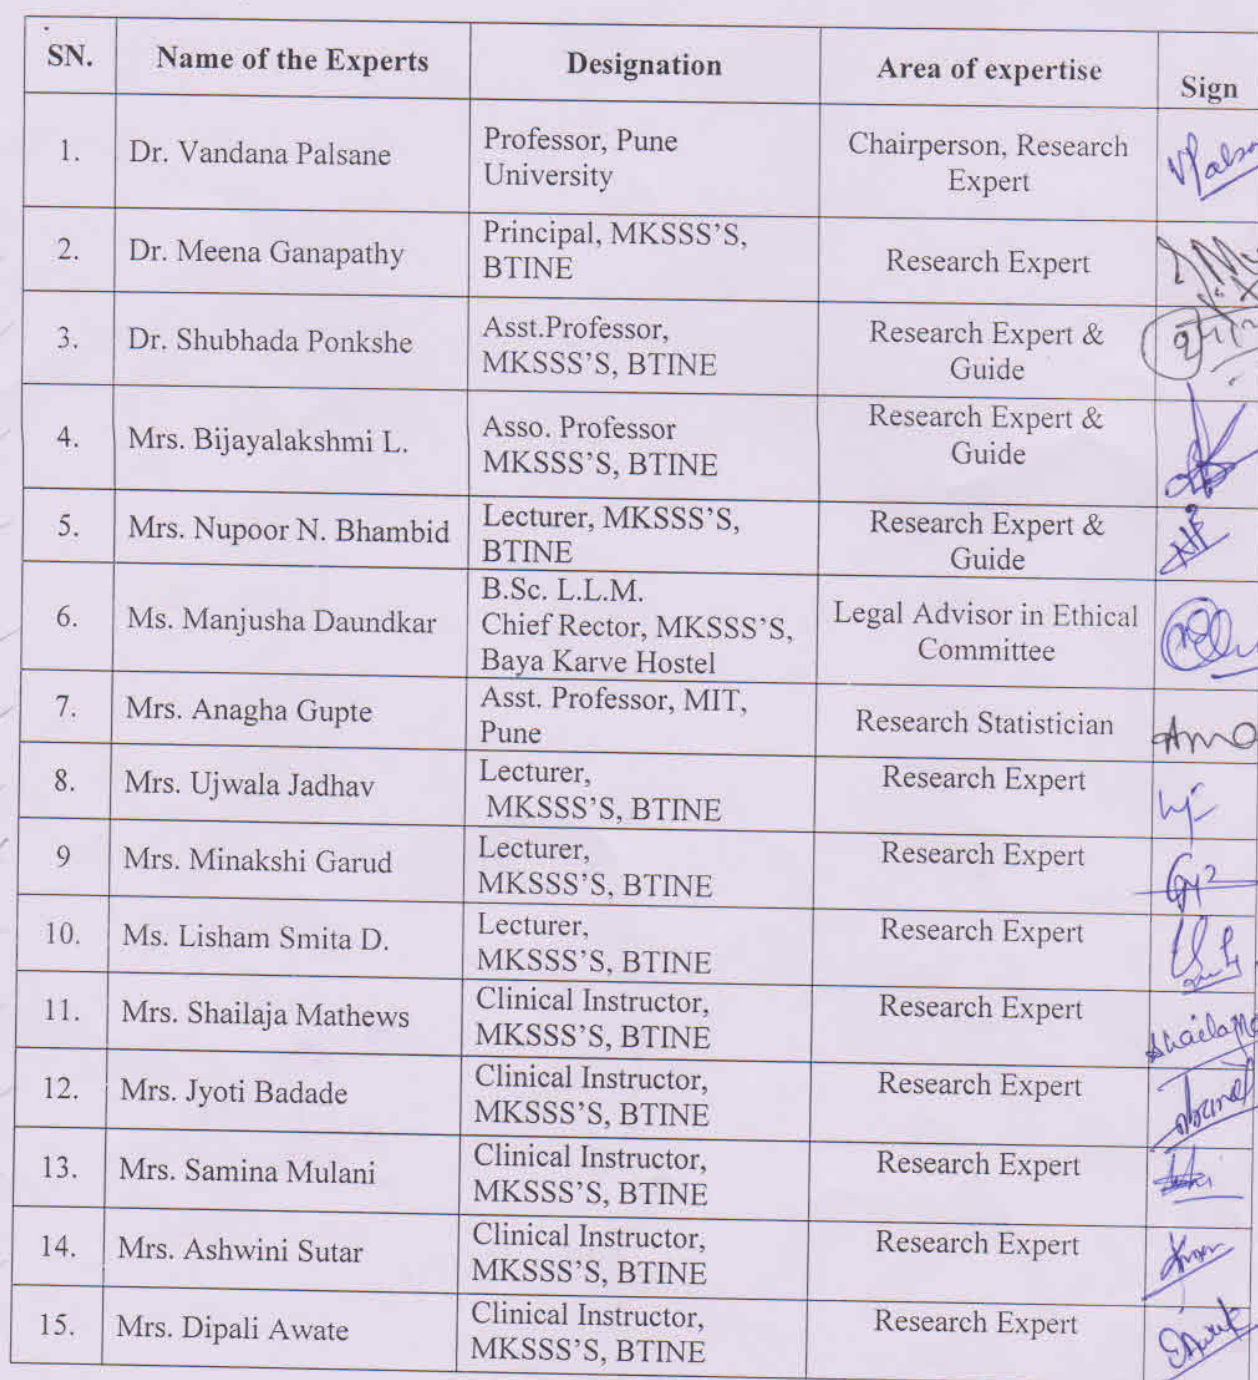 SN. Name of the Experts Designation Area of expertise Sign
1. Dr. Vandana Palsane Professor, Pune University Chairperson, Research Expert VPalsa
2. Dr. Meena Ganapathy Principal, MKSSS'S, BTINE Research Expert
3. Dr. Shubhada Ponkshe Asst.Professor, MKSSS'S, BTINE Research Expert & Guide
4. Mrs. Bijayalakshmi L. Asso. Professor MKSSS'S, BTINE Research Expert & Guide
5. Mrs. Nupoor N. Bhambid Lecturer, MKSSS'S, BTINE Research Expert & Guide
6. Ms. Manjusha Daundkar B.Sc. L.L.M. Chief Rector, MKSSS'S, Baya Karve Hostel Legal Advisor in Ethical Committee
7. Mrs. Anagha Gupte Asst. Professor, MIT, Pune Research Statistician
8. Mrs. Ujwala Jadhav Lecturer, MKSSS'S, BTINE Research Expert
9 Mrs. Minakshi Garud Lecturer, MKSSS'S, BTINE Research Expert
10. Ms. Lisham Smita D. Lecturer, MKSSS'S, BTINE Research Expert
11. Mrs. Shailaja Mathews Clinical Instructor, MKSSS'S, BTINE Research Expert
12. Mrs. Jyoti Badade Clinical Instructor, MKSSS'S, BTINE Research Expert
13. Mrs. Samina Mulani Clinical Instructor, MKSSS'S, BTINE Research Expert
14. Mrs. Ashwini Sutar Clinical Instructor, MKSSS'S, BTINE Research Expert
15. Mrs. Dipali Awate Clinical Instructor, MKSSS'S, BTINE Research Expert